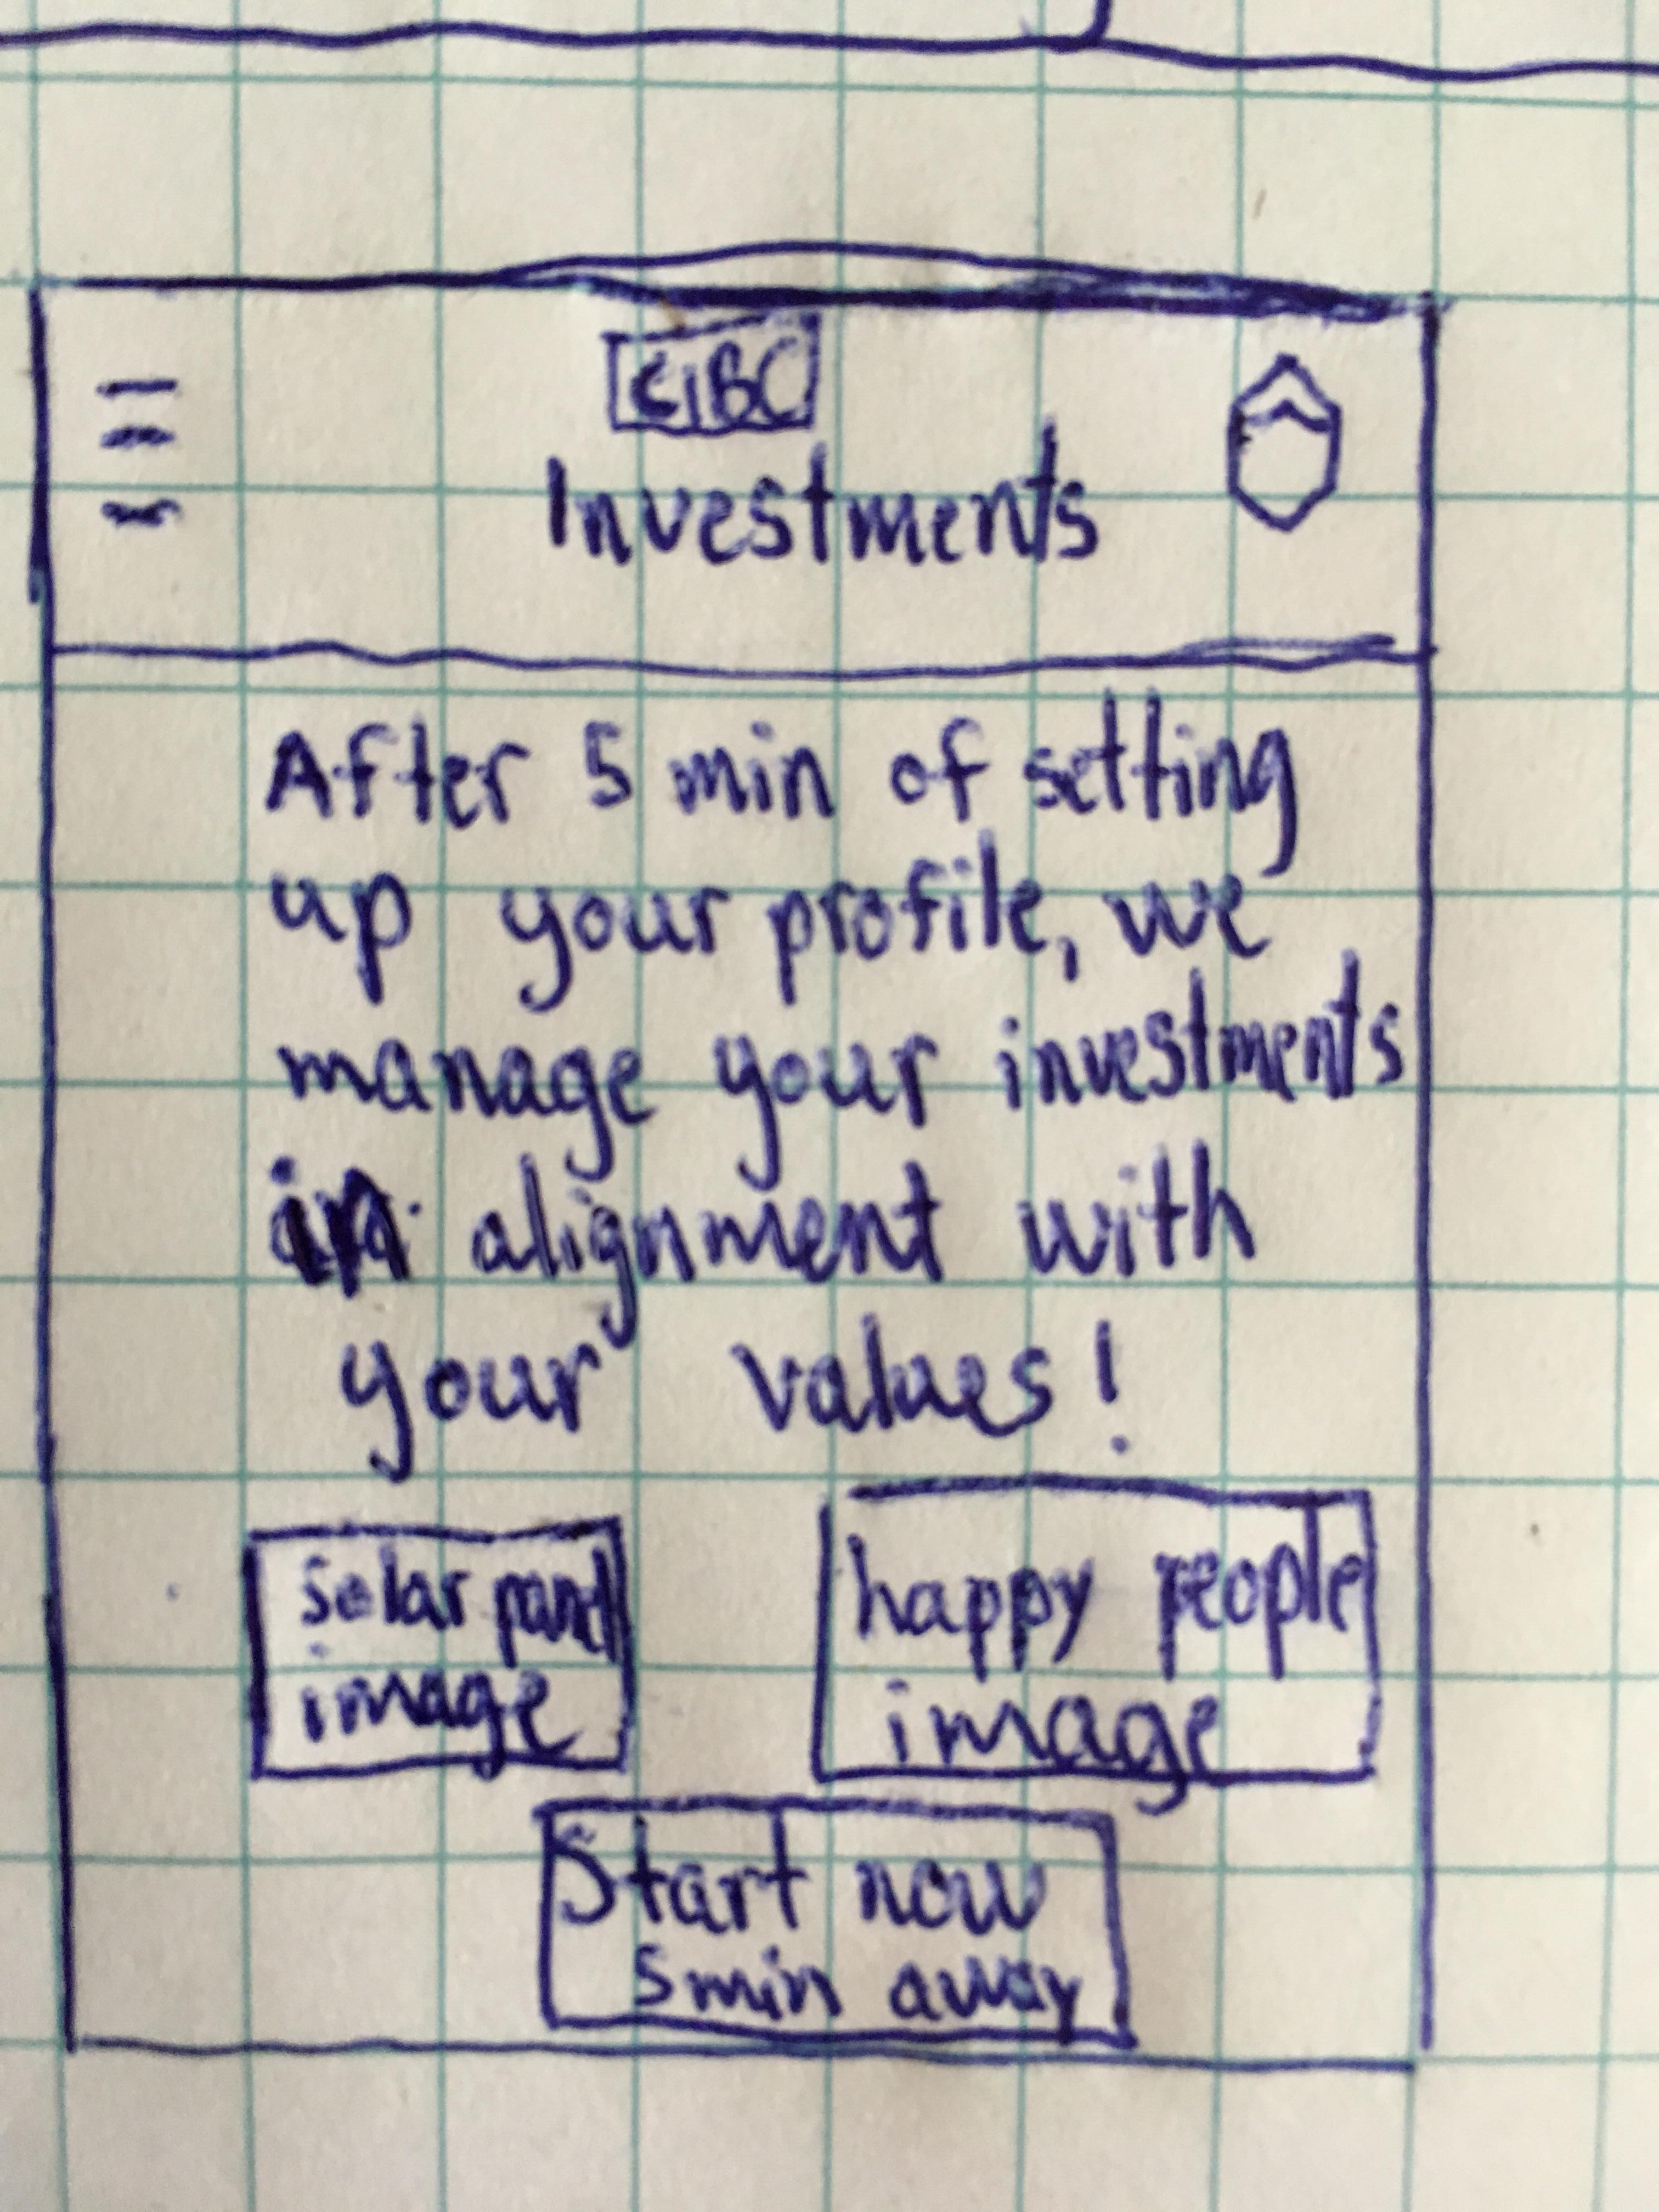 CIBC
Investments
After 5 min of setting
up your profile, we
manage your investments
in alignment with
your values!
Solar panel
image
happy people
image
Start now
5 min away